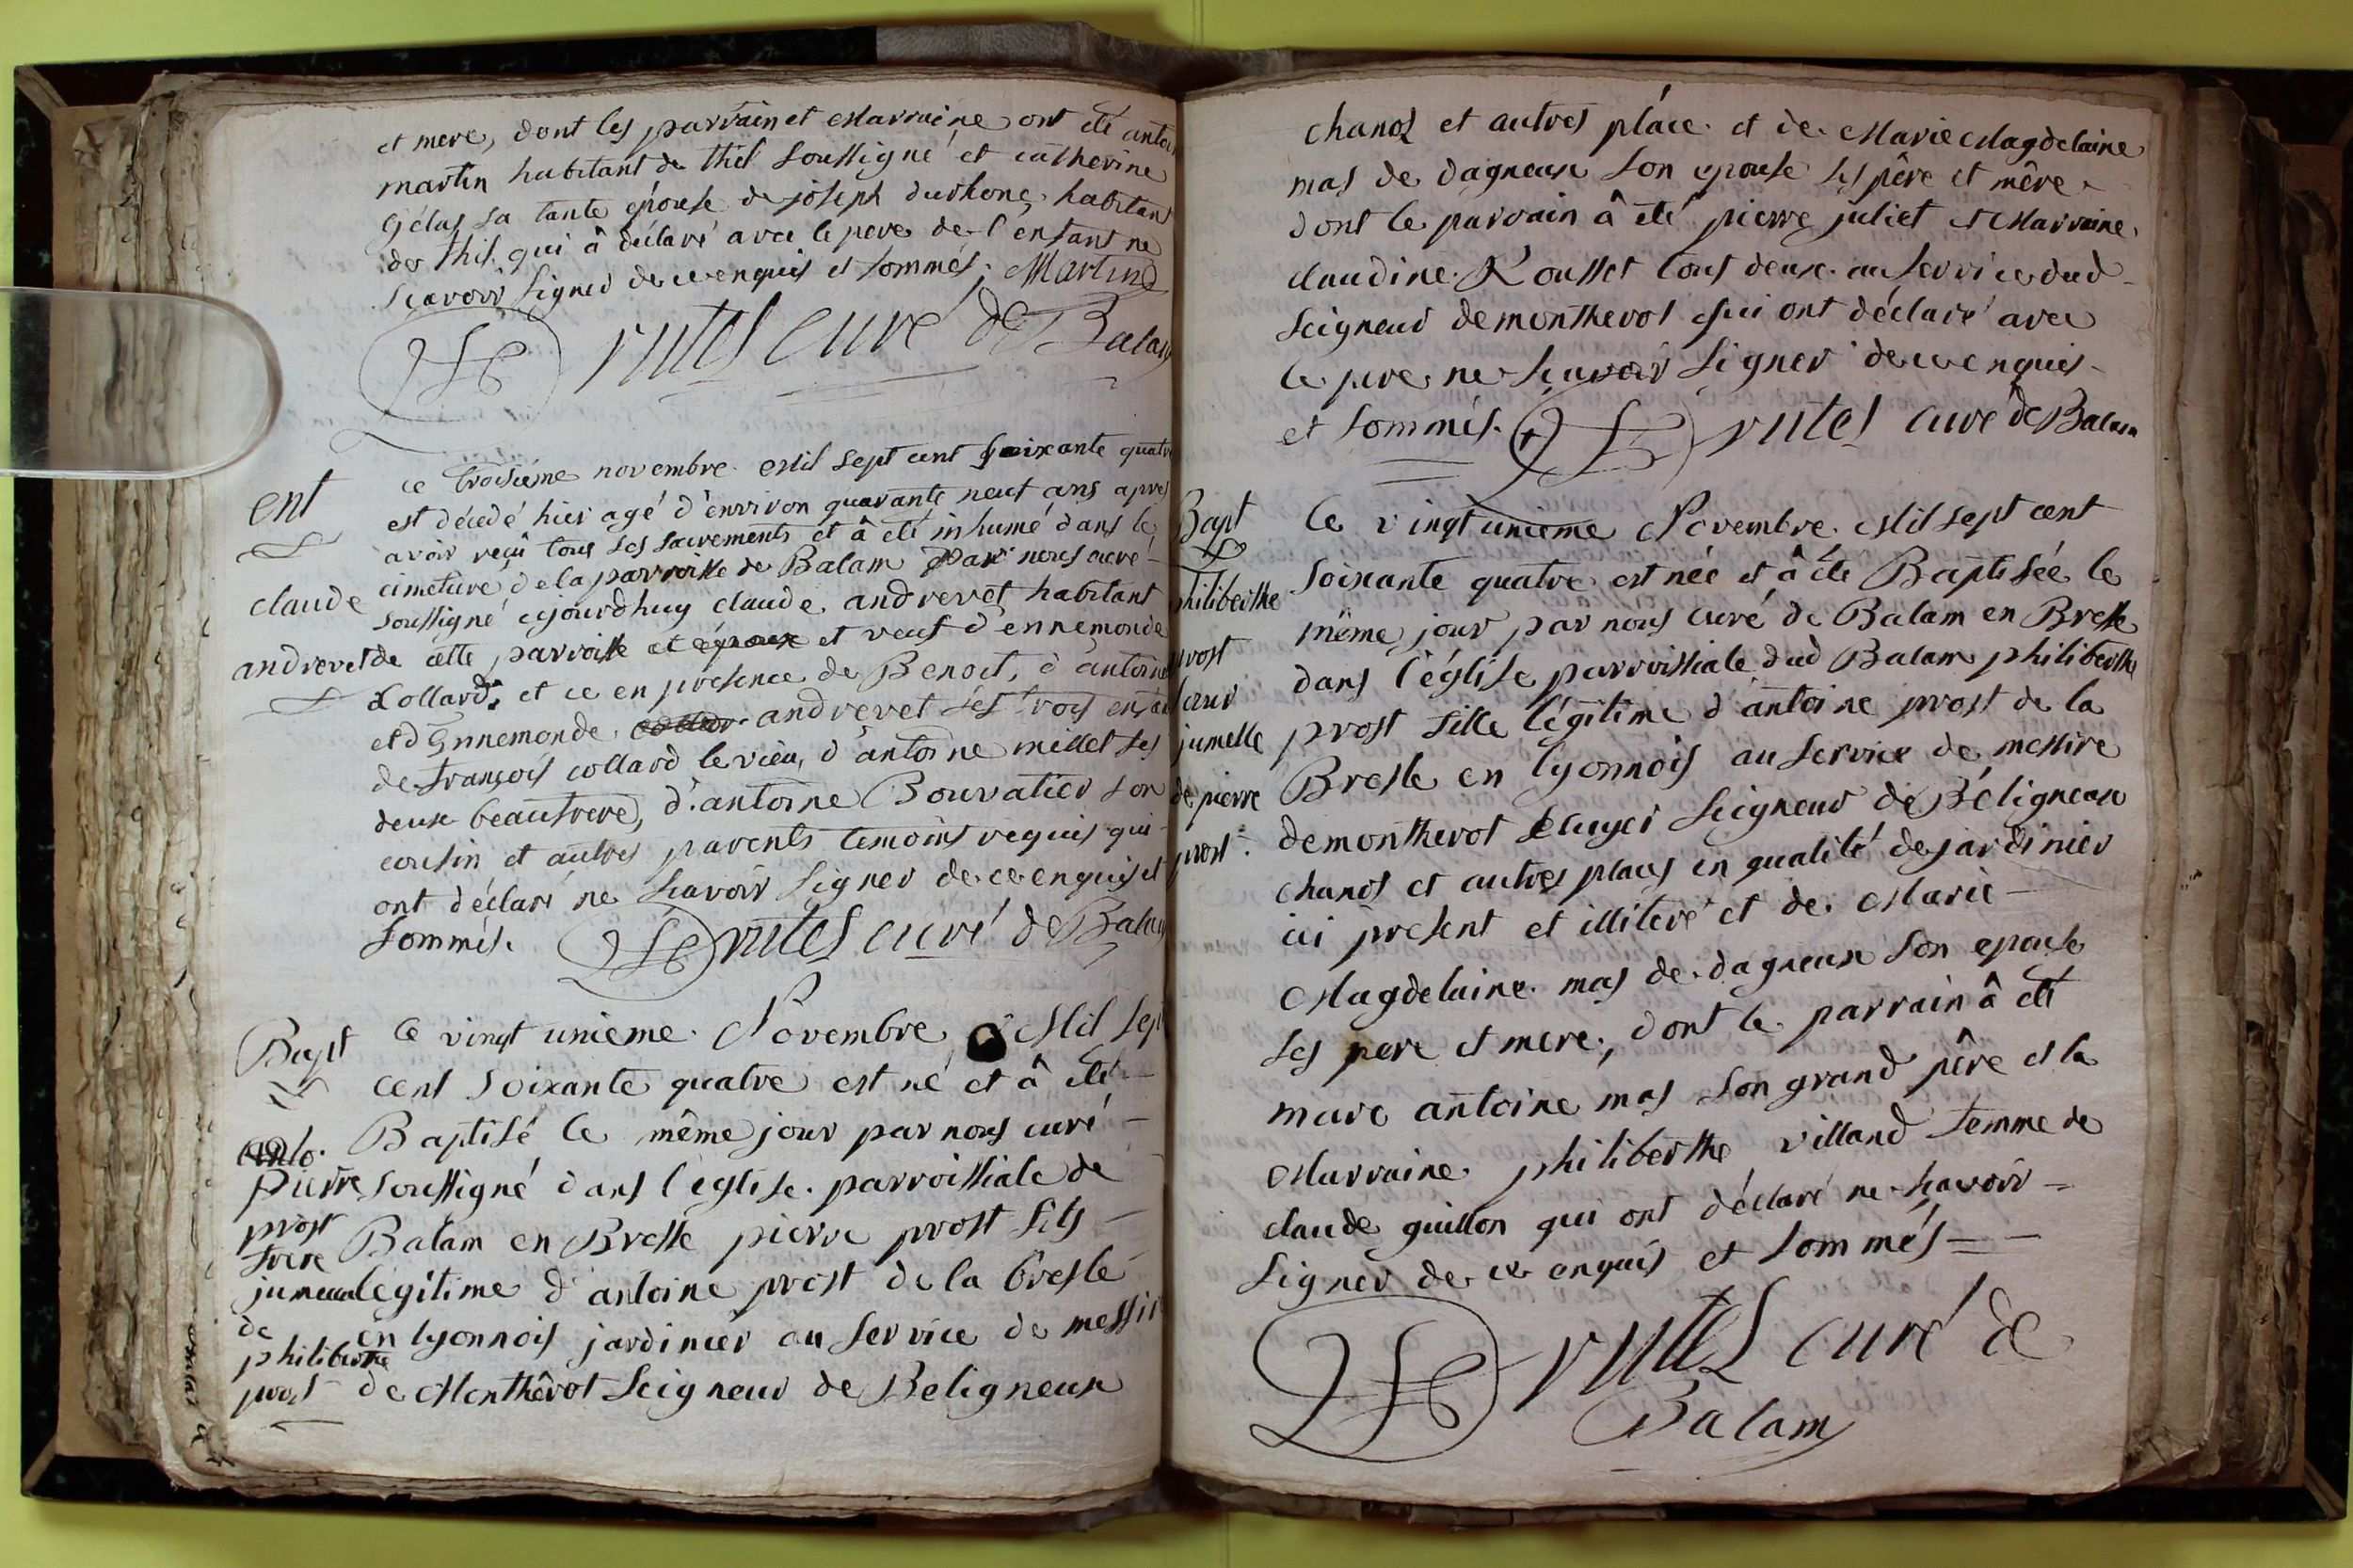 et mere, dont les parrain et Marraine ont été antoi
martin habitant de thil soussigné et catherine
gélas sa tante épouse de joseph durhone habitant
de thil qui â déclaré avec le pere de l'enfant ne
sçavoir signer de ce enquis et sommés. Martin
rutel curé de Balam
ent
claude
andrevet
Le troisiéme novembre Mil sept cent soixante quatre
est décedé hier agé d'environ quarante neuf ans apres
avoir reçu tous ses sacrements et â été inhumé dans le
cimetiere de la parroisse de Balam par nous curé
soussigné ajourdhuy claude andrevet habitant
de cette parroisse et époux et veuf d'ennemonde
Collard, et ce en presence de Benoit, d'antoine
et d'Ennemonde andrevet ses trois enfan
de françois collard le vieu, d'antoine millet ses
deux beaufrere, d'antoine Bouvatier son
cousin et autres parents temoins requis qui
ont déclaré ne sçavoir signer de ce enquis et
sommés. rutel curé de Balam
Bapt
anto.
pierre
prost
frere
jumeau
de
philiberthe
prost
Le vingt unieme Novembre Mil sept
cent soixante quatre est né et â été
Baptisé le même jour par nous curé
soussigné dans l'église parroissiale de
Balam en Bresse pierre prost fils
légitime d'antoine prost de la bresle
en lyonnois jardinier au service de messir
de Monthêrot Seigneur de Beligneux
chanoz et autres pláce et de Marie Magdelaine
mas de dagneux son epouse ses pêre et mêre
dont le parrain â été pierre juliet et Marraine
claudine Rousset tous deux au service dud
seigneur de montherot qui ont déclaré avec
le pere ne sçavoir signer de ce enquis
et sommés. rutel curé de Balam
Bapt
philiberthe
prost
sœur
jumelle
de pierre
prost.
Le vingt unieme Novembre Mil sept cent
soixante quatre est née et â été Baptisée le
même jour par nous curé de Balam en Bresse
dans l'église parroissiale dud Balam philiberthe
prost fille légitime d'antoine prost de la
Bresle en lyonnois au service de messire
de montherot Ecuyer seigneur de Béligneux
chanos et autres places en qualité de jardinier
ici present et illiteré et de Marie
Magdelaine mas de dagneux son epouse
ses pere et mere, dont le parrain â été
marc antoine mas son grand pêre et la
Marraine philiberthe villand femme de
claude guillon qui ont déclaré ne sçavoir
signer de ce enquis et sommés
rutel curé de
Balam